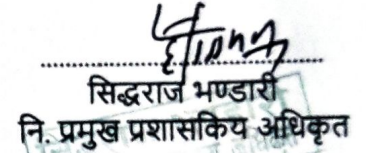 सिद्धराज भण्डारी
नि. प्रमुख प्रशासकिय अधिकृत